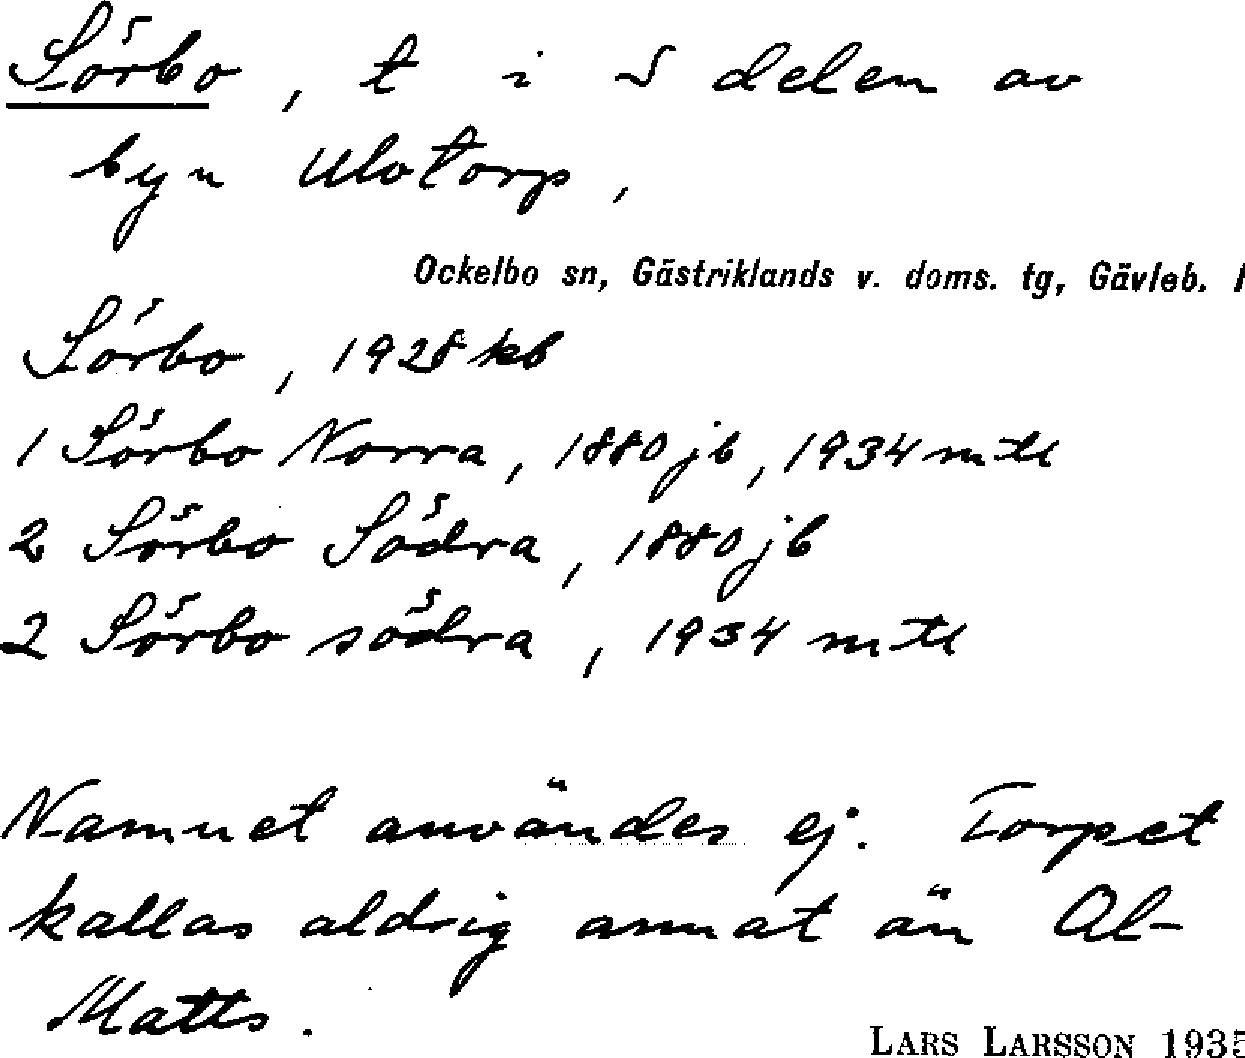 Sörbo, t i S delen av
byn Ulvtorp,
Ockelbo sn, Gästriklands v. doms. tg, Gävleb. l
Sörbo, 1928 kb
1 Sörbo Norra, 1880 jb, 1934 mtl
2 Sörbo Södra, 1880 jb
2 Sörbo södra, 1934 mtl
Namnet användes ej. Torpet
kallas aldrig annat än Ol-
Matts.
LARS LARSSON 1935